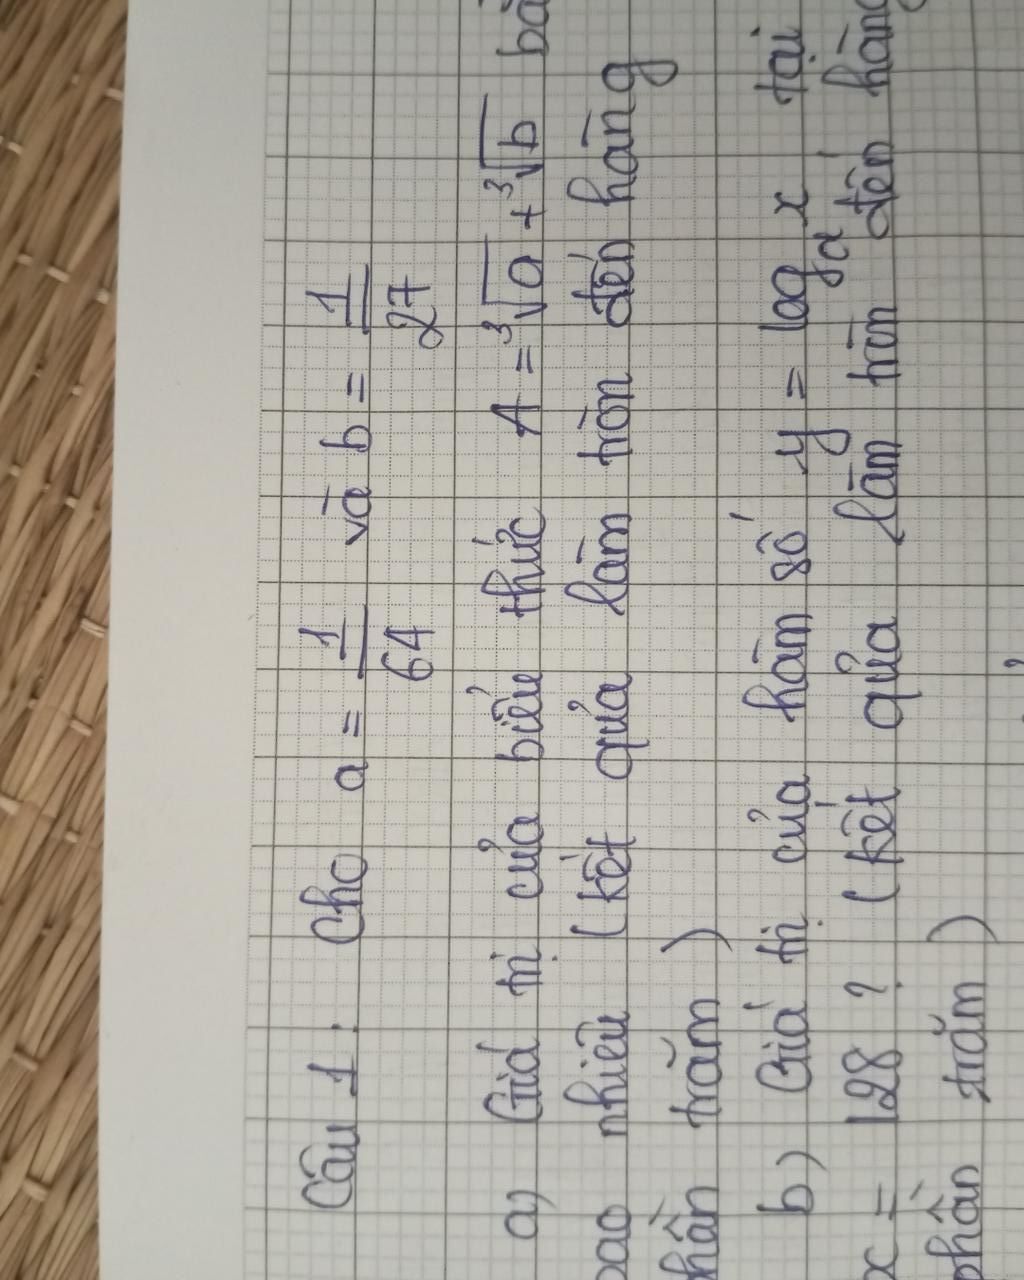 Câu 1. Cho a = 1/64 và b = 1/27
a) Giá trị của biểu thức A = ³√a + ³√b
bao nhiêu (kết quả làm tròn đến hàng
phần trăm)
b) Giá trị của hàm số y = log_a x tại
x = 128? (kết quả làm tròn đến hàng
phần trăm)